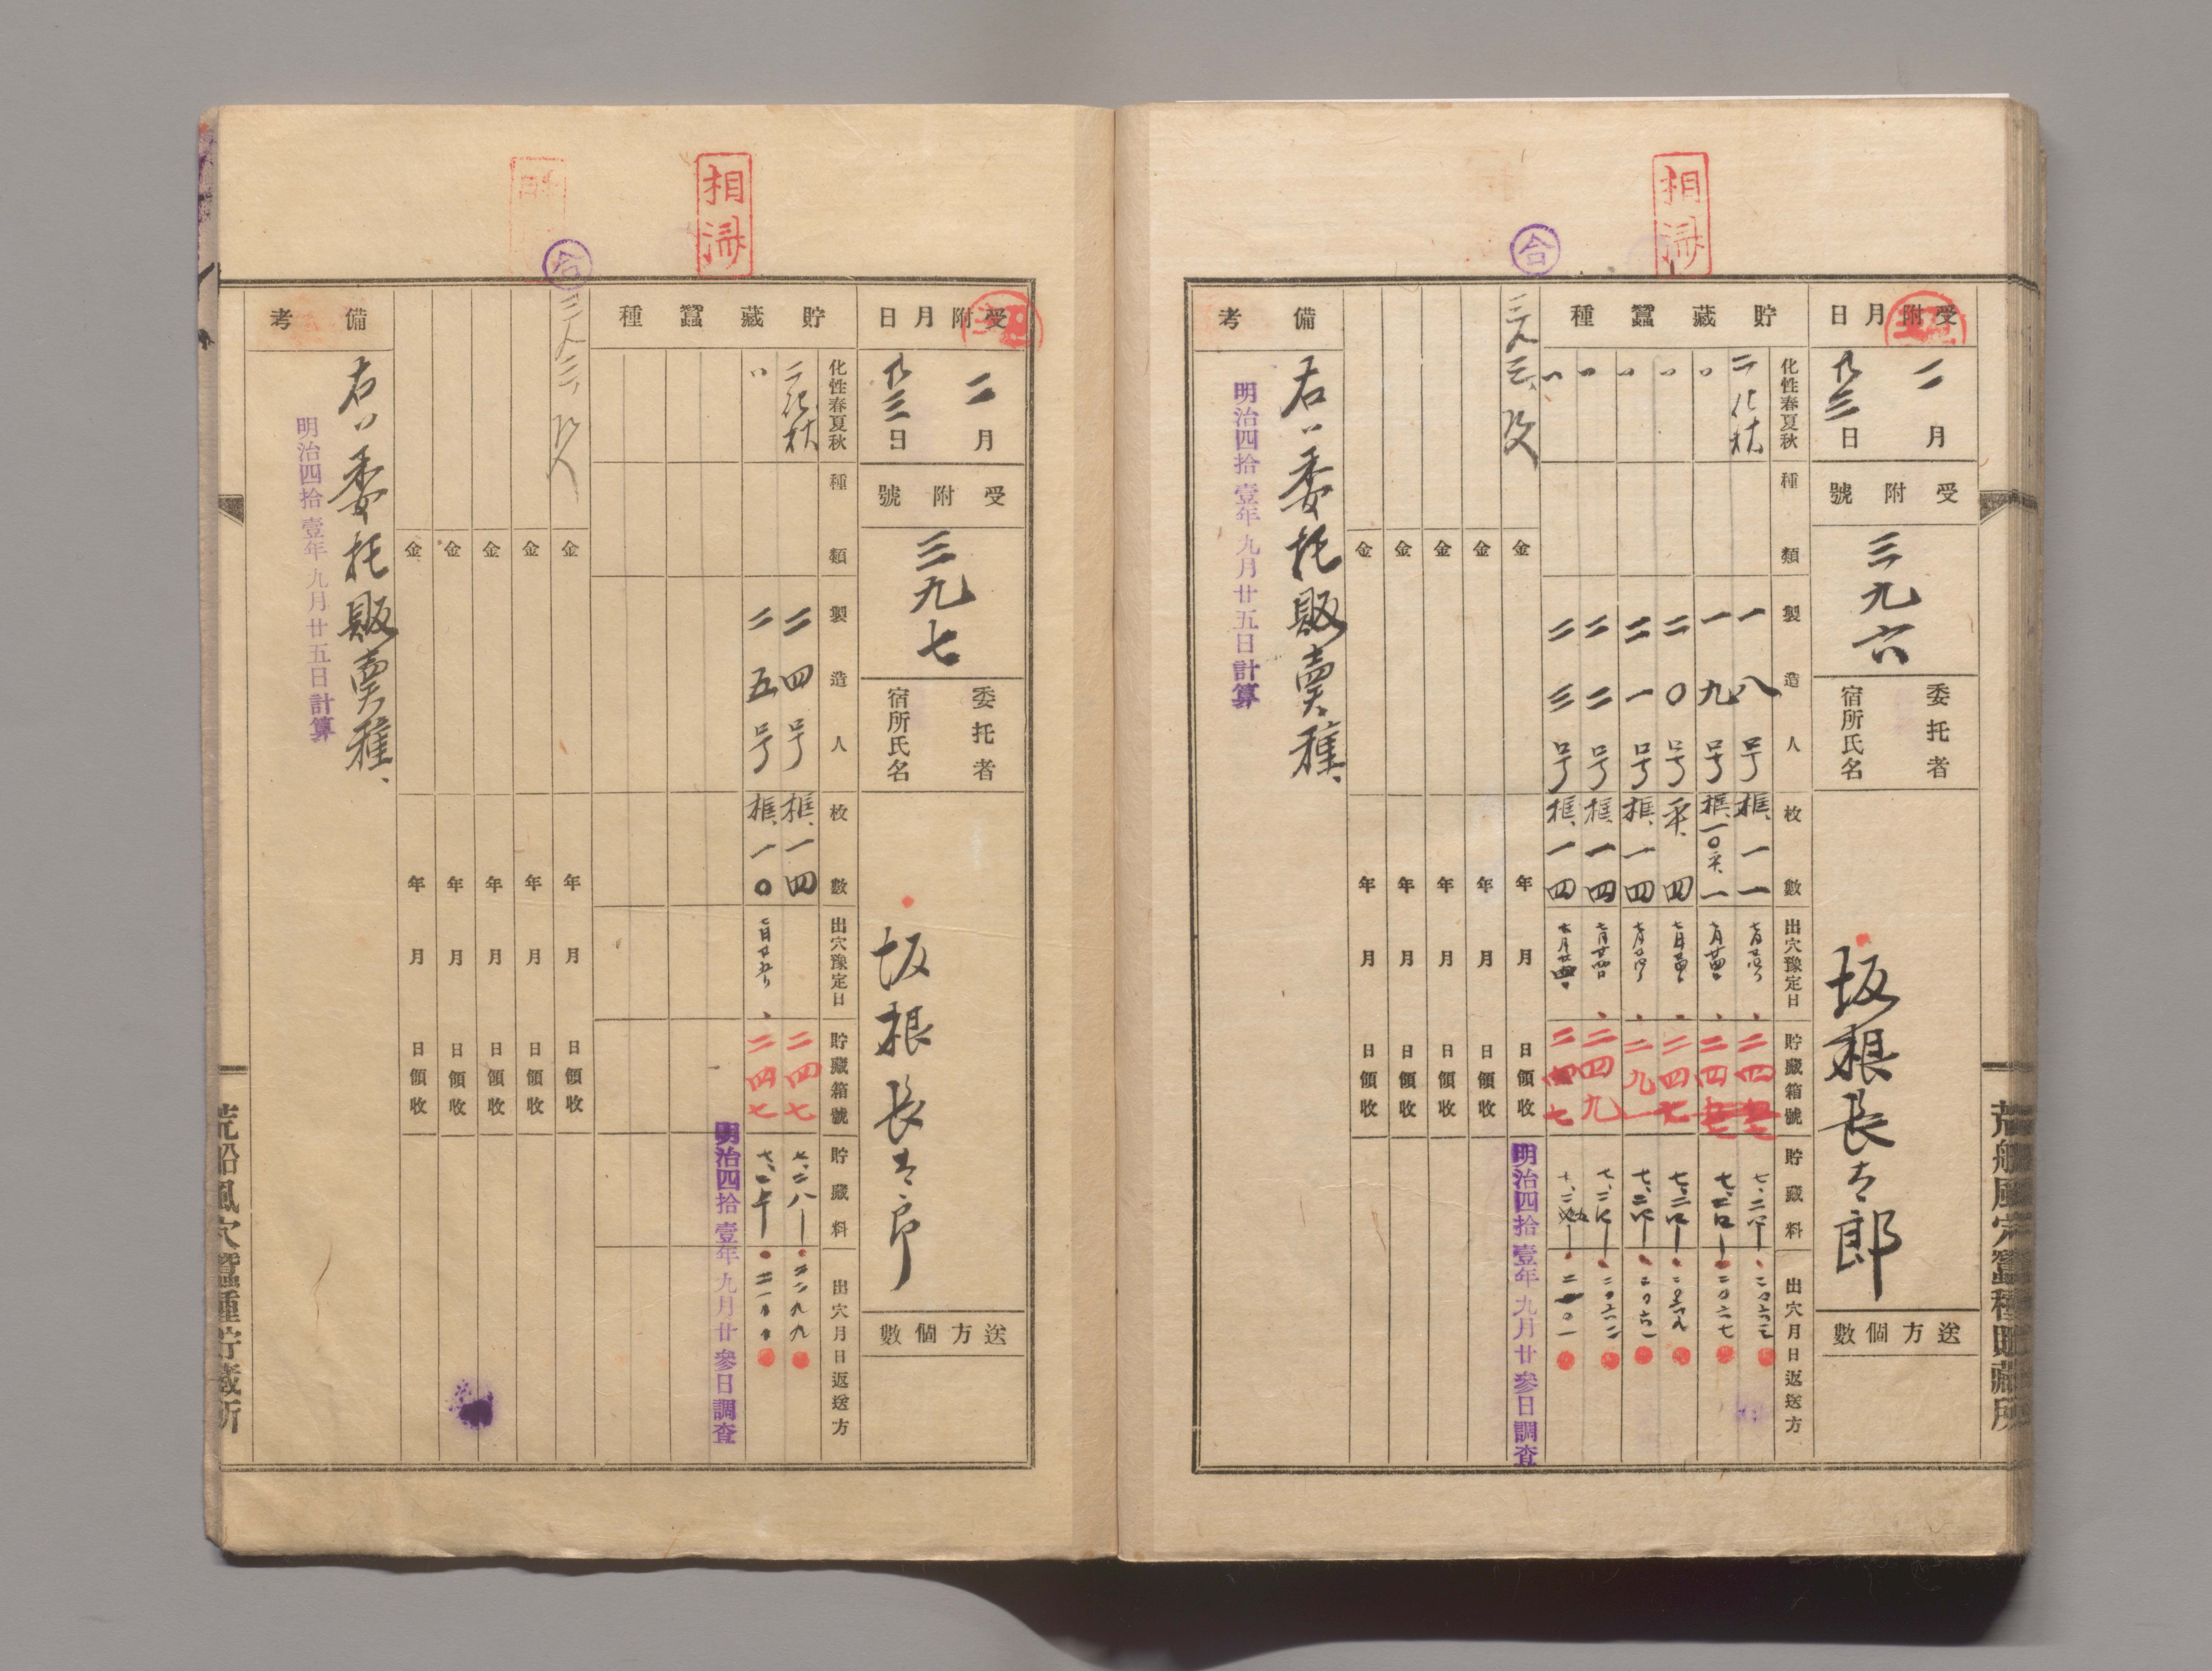 相済
合
荒船風穴蠶種貯藏所
受附月日
二月
廿三日
受附號
三九六
委托者
宿所氏名
坂根長太郎
送方個數
貯藏蠶種
化性春夏秋
種類
製造人
枚數
出穴豫定日
貯藏箱號
貯藏料
出穴月日返送方
二化秋
一八号
框、一一
一九号
框、一〇平、一
二〇号
平、四
二四七
二一号
框、一四
二九一
二二号
框、一四
二四九
二三号
框、一四
二四七
金 年 月 日領收
明治四拾壹年九月廿參日調査
金 年 月 日領收
金 年 月 日領收
金 年 月 日領收
金 年 月 日領收
備考
右ハ委托販賣種、
明治四拾壹年九月廿五日計算
相済
合
受附月日
二月
廿三日
受附號
三九七
委托者
宿所氏名
坂根長太郎
送方個數
貯藏蠶種
化性春夏秋
種類
製造人
枚數
出穴豫定日
貯藏箱號
貯藏料
出穴月日返送方
二化秋
二四号
框、一四
二四七
二五号
框、一〇
二四七
明治四拾壹年九月廿參日調査
金 年 月 日領收
金 年 月 日領收
金 年 月 日領收
金 年 月 日領收
金 年 月 日領收
備考
右ハ委托販賣種、
明治四拾壹年九月廿五日計算
荒船風穴蠶種貯藏所